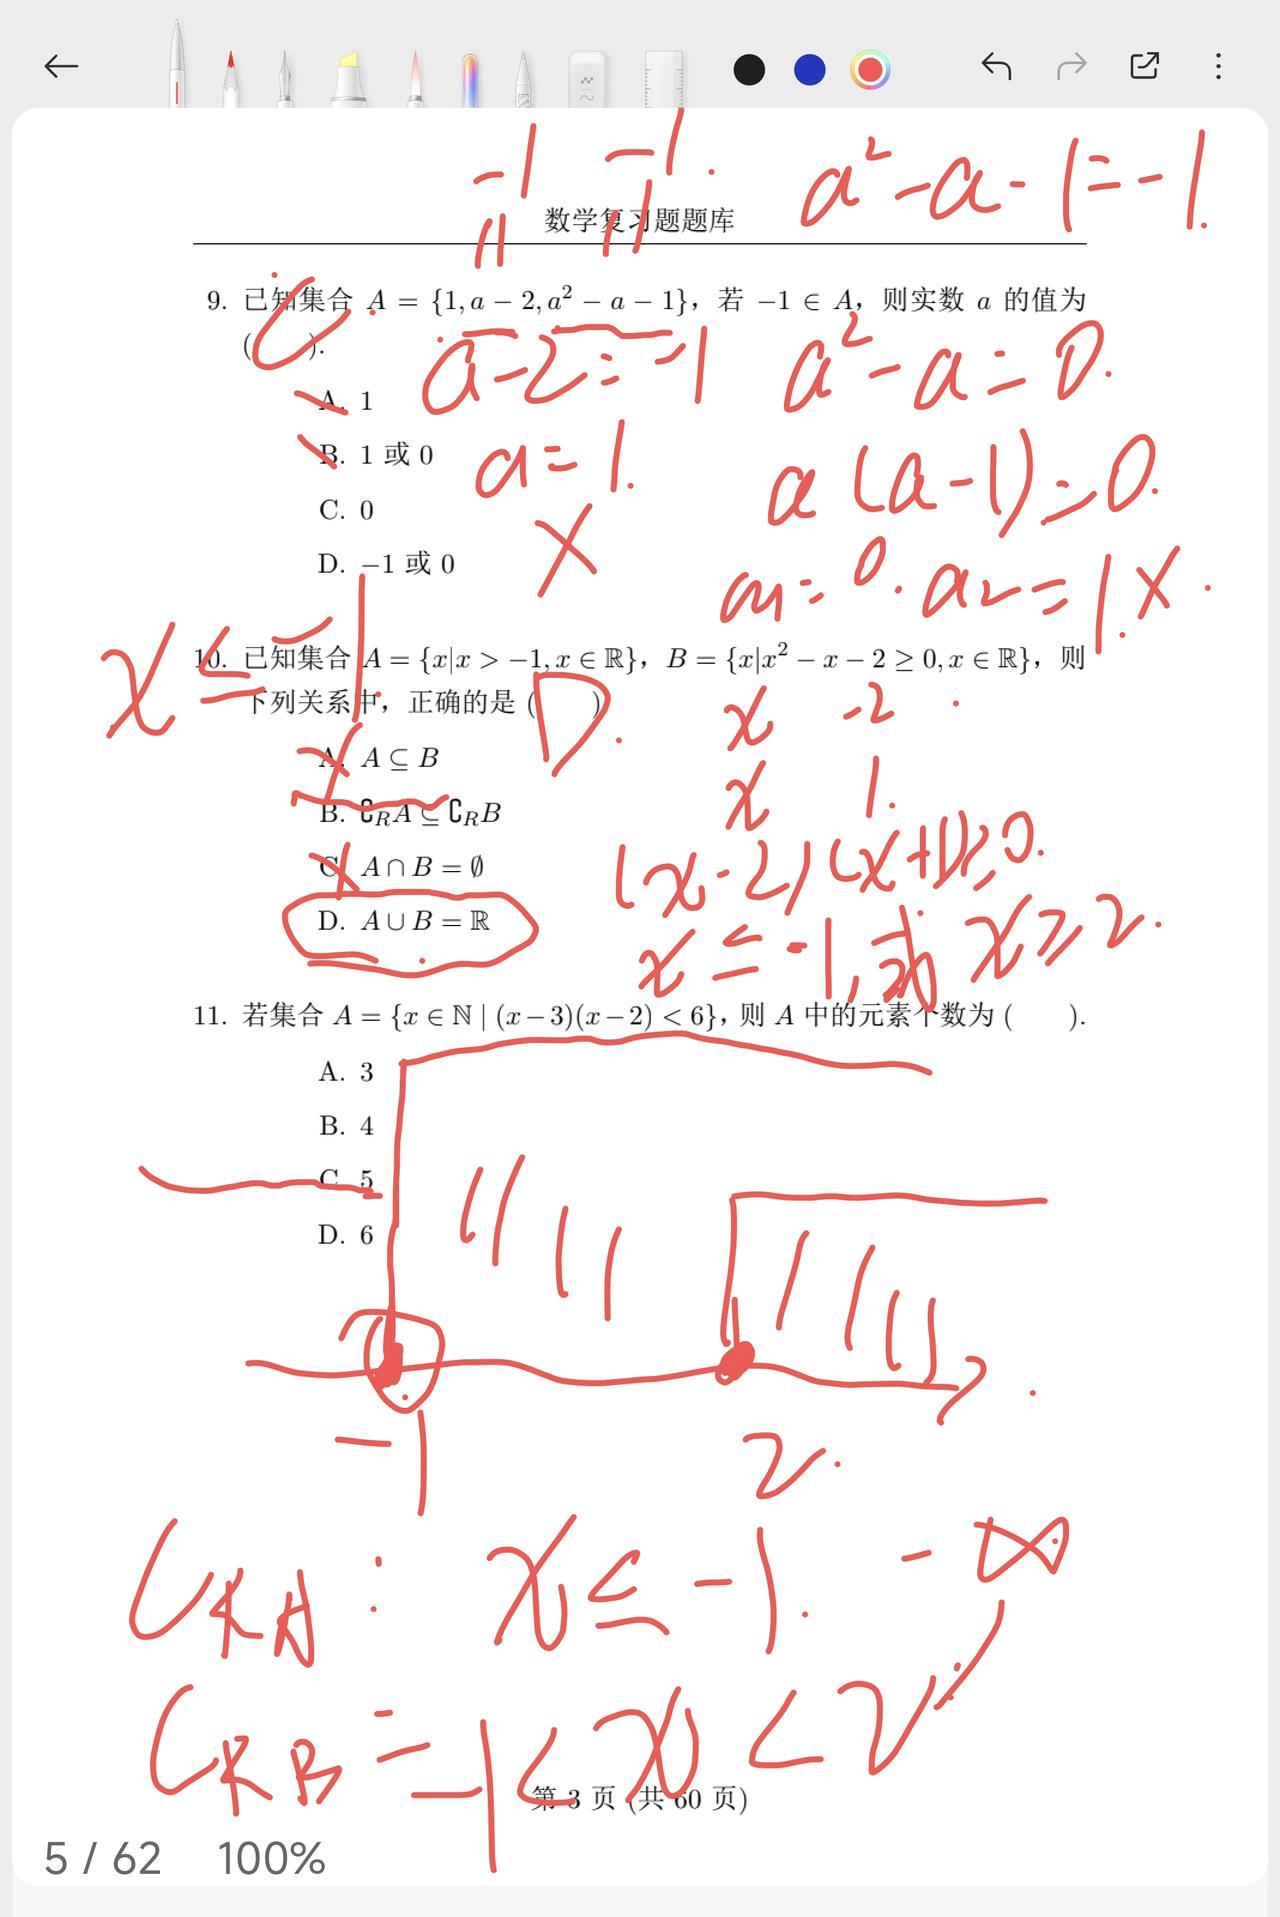 -1 -1. a²-a-1=-1.
数学复习题题库
9. 已知集合 A = {1, a − 2, a² − a − 1}，若 −1 ∈ A，则实数 a 的值为
( C ).
a-2=-1 a²-a=0.
A. 1
B. 1 或 0
a=1. a(a-1)=0.
C. 0
D. −1 或 0
X a1=0. a2=1. X.
x≤-1
10. 已知集合 A = {x|x > −1, x ∈ ℝ}，B = {x|x² − x − 2 ≥ 0, x ∈ ℝ}，则
下列关系中，正确的是 ( D. )
x -2
A. A ⊆ B
x 1.
B. ∁_R A ⊆ ∁_R B
(x-2)(x+1)≥0.
C. A ∩ B = ∅
D. A ∪ B = ℝ
x≤-1,或x≥2.
11. 若集合 A = {x ∈ ℕ | (x − 3)(x − 2) < 6}，则 A 中的元素个数为 ( ).
A. 3
B. 4
C. 5
D. 6
-1 2.
CRA: x≤-1. -∞
CRB=-1<x<2
第 3 页 (共 60 页)
5 / 62 100%